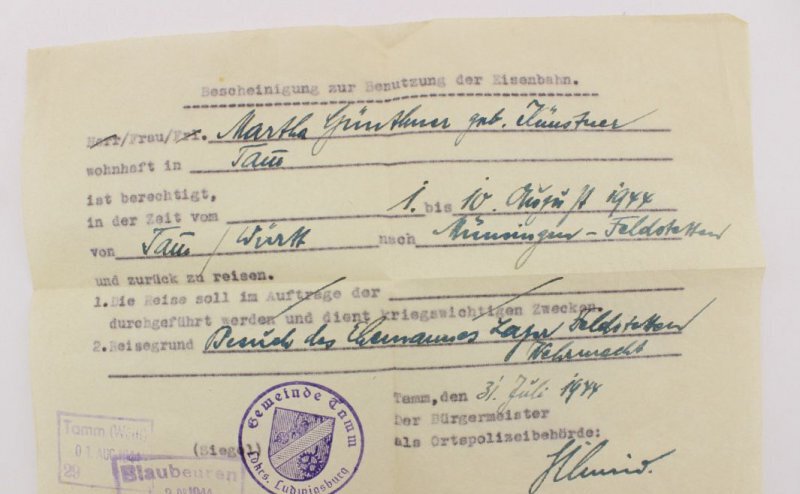 Bescheinigung zur Benutzung der Eisenbahn.
Herr/Frau/Frl. Martha Günthner geb. Künstner
wohnhaft in Tam̅
ist berechtigt,
in der Zeit vom 1. bis 10. August 1944
von Tam̅ / Württ nach Münsingen - Feldstetten
und zurück zu reisen.
1. Die Reise soll im Auftrage der
durchgeführt werden und dient kriegswichtigen Zwecken.
2. Reisegrund Besuch des Ehemannes Lager Feldstetten
Wehrmacht
Tamm, den 31. Juli 1944
Der Bürgermeister
als Ortspolizeibehörde:
(Siegel)
Gemeinde Tamm
Lkrs. Ludwigsburg
Tamm (Württ)
01. AUG. 1944
29
Blaubeuren
1944